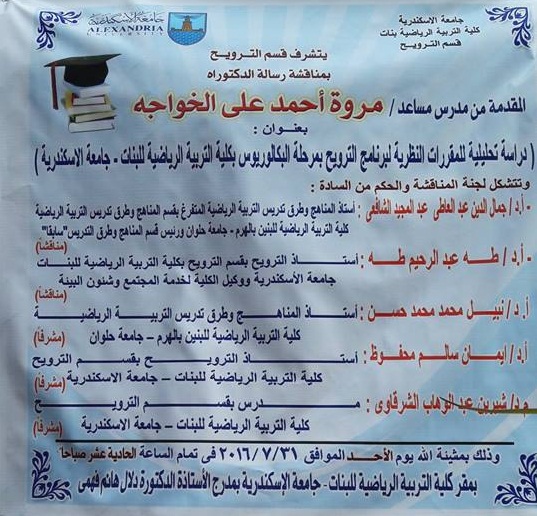 جامعة الاسكندرية
كلية التربية الرياضية بنات
قسم الترويح
جامعة الإسكندرية
ALEXANDRIA
UNIVERSITY
يتشرف قسم الترويح
بمناقشة رسالة الدكتوراه
المقدمة من مدرس مساعد / مروة أحمد على الخواجه
بعنوان :
( دراسة تحليلية للمقررات النظرية لبرنامج الترويح بمرحلة البكالوريوس بكلية التربية الرياضية للبنات - جامعة الاسكندرية )
وتتشكل لجنة المناقشة والحكم من السادة :
- أ.د/ جمال الدين عبد العاطى عبد المجيد الشافعى : أستاذ المناهج وطرق تدريس التربية الرياضية المتفرغ بقسم المناهج وطرق تدريس التربية الرياضية
كلية التربية الرياضية للبنين بالهرم - جامعة حلوان ورئيس قسم المناهج وطرق التدريس "سابقا" (مناقشاً)
- أ.د/ طه عبد الرحيم طه : أستاذ الترويح بقسم الترويح بكلية التربية الرياضية للبنات
جامعة الأسكندرية ووكيل الكلية لخدمة المجتمع وشئون البيئة (مناقشاً)
أ.د/ نبيل محمد محمد حسن : أستاذ المناهج وطرق تدريس التربية الرياضية
كلية التربية الرياضية للبنين بالهرم - جامعة حلوان (مشرفاً)
أ.د/ ايمان سالم محفوظ : أستاذ الترويح بقسم الترويح
كلية التربية الرياضية للبنات - جامعة الاسكندرية (مشرفا)
م.د/ شيرين عبد الوهاب الشرقاوى : مدرس بقسم الترويح
كلية التربية الرياضية للبنات - جامعة الاسكندرية (مشرفا)
وذلك بمشيئة الله يوم الأحد الموافق ٢٠١٦/٧/٣١ فى تمام الساعة الحادية عشر صباحا
بمقر كلية التربية الرياضية للبنات - جامعة الإسكندرية بمدرج الأستاذة الدكتورة دلال هانم فهمى